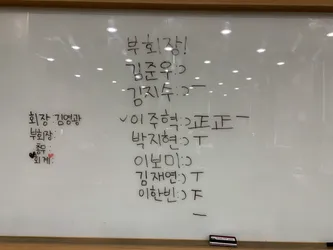 부회장!
김준우:)
김지수:) ㅡ
이주혁:) 正正ㅡ
박지현:) ㅜ
이보미:)
김재연:) ㅜ
이한빈:) 下
ㅡ
회장 김영광
부회장:
총무:
회계: